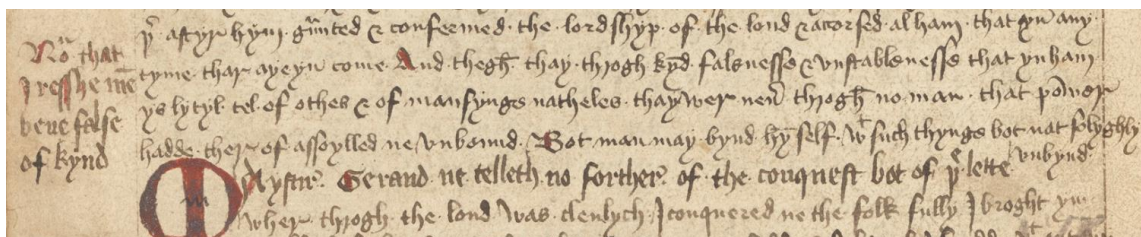 Noᵗ that
Iresshe mē
beue false
of kynd
þᵗ aftyr hym graunted & confermed the lordshyp of the lond & acorsed al ham that yn any
tyme thar ayeyn come And thegh thay throgh kynd falsnesse & vnstablenesse that yn ham
ys lytyl tel of othes & of mansynge natheles thay wer neuer throgh no man that power
hadde ther of assoylled ne vnbound Bot man may bynd hym self wᵗ such thynge bot nat folyghly
vnbynd
Mayster Gerand ne telleth no forther of the conquest bot of þᵗ lette
wher throgh the lond was clenlych Iconquered ne the folk fully Ibroght yn